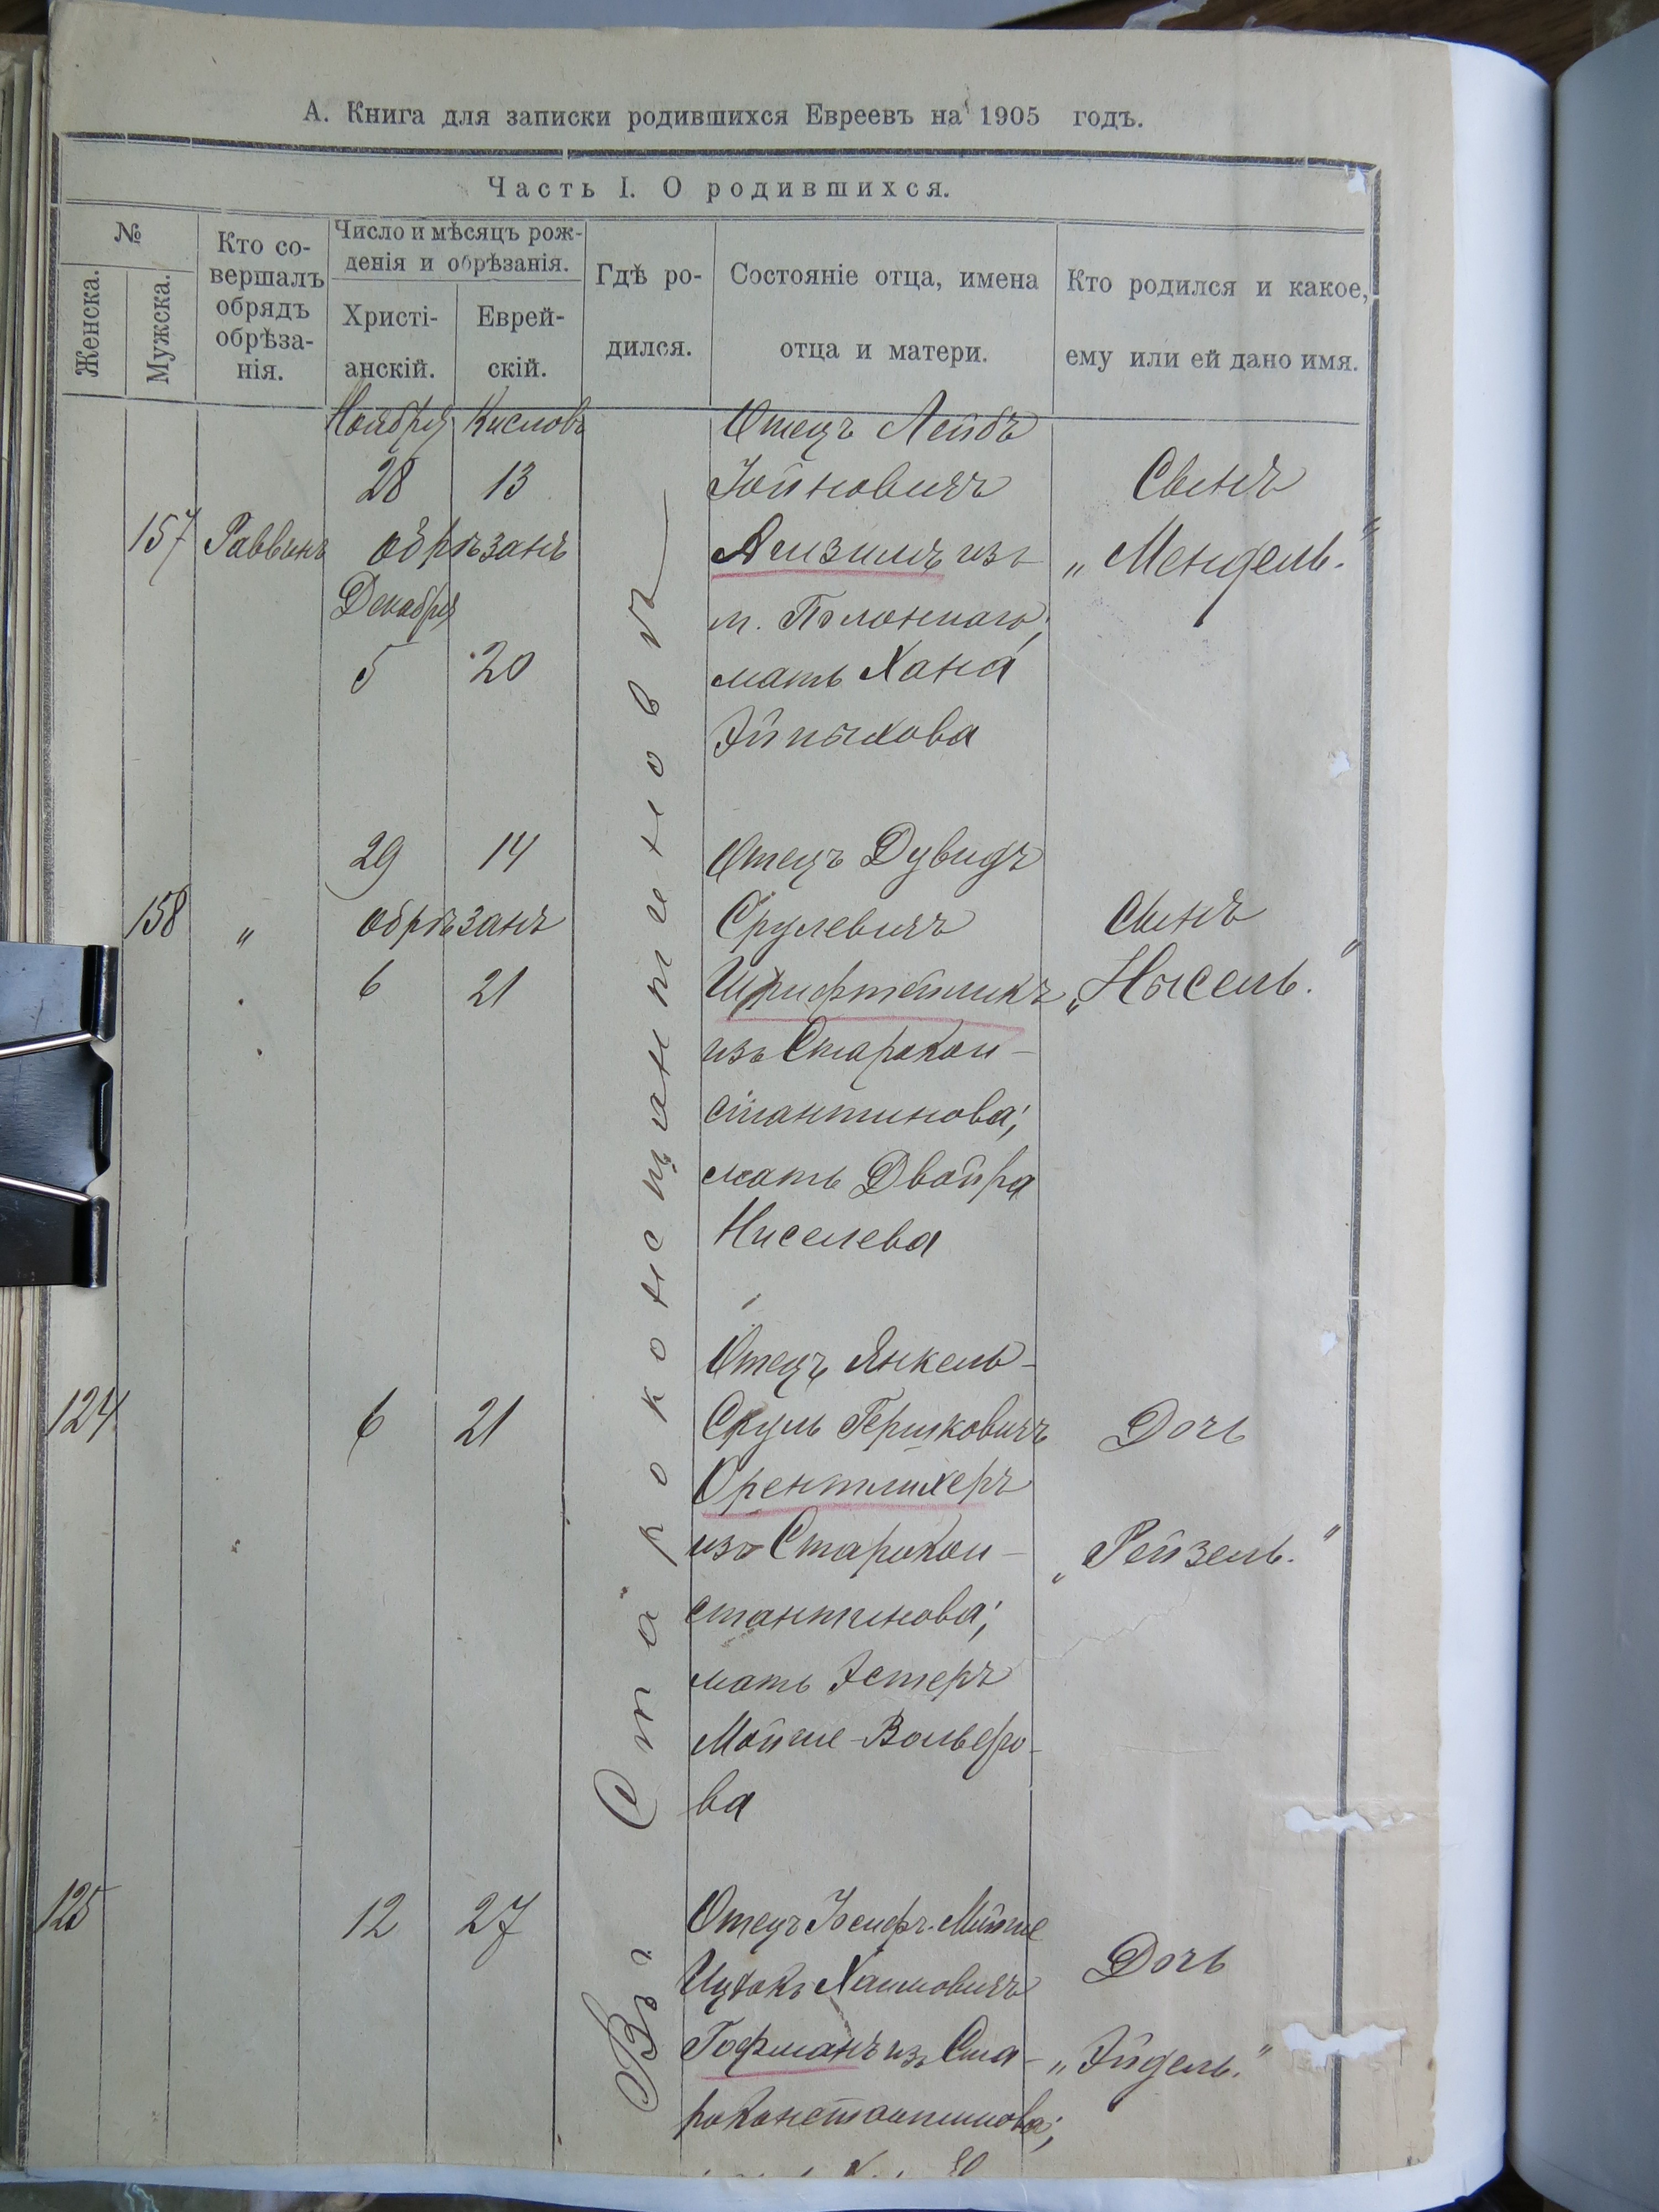 А. Книга для записки родившихся Евреевъ на 1905 годъ.
Часть I. О родившихся.
№
Женска.
Мужска.
Кто со-
вершалъ
обрядъ
обрѣза-
нія.
Число и мѣсяцъ рож-
денія и обрѣзанія.
Христі-
анскій.
Еврей-
скій.
Гдѣ ро-
дился.
Состояніе отца, имена
отца и матери.
Кто родился и какое,
ему или ей дано имя.
Въ Староконстантиновѣ
157
Раввинъ
Ноября Кисловъ
28 13
обрѣзанъ
Декабря
5 20
Отецъ Лейбъ
изъ
м. Полоннаго,
мать Хана
Сынъ
„Мендель."
158
"
29 14
обрѣзанъ
6 21
Отецъ Дувидъ
Срулевичъ
Шрифтейликъ
изъ Старокон-
стантинова;
мать Двойра
Ниселева
Сынъ
„Нысель."
124
6 21
Отецъ Янкель-
Сруль Гершковичъ
Орентлихеръ
изъ Старокон-
стантинова;
мать Эстеръ
Мойше-Вольфо-
ва
Дочь
„Рейзель."
125
12 27
Отецъ Іосифъ-Мойше
Ицхокъ Хаимовичъ
Гофманъ изъ Ста-
роконстантинова;
Дочь
„Эйдель."